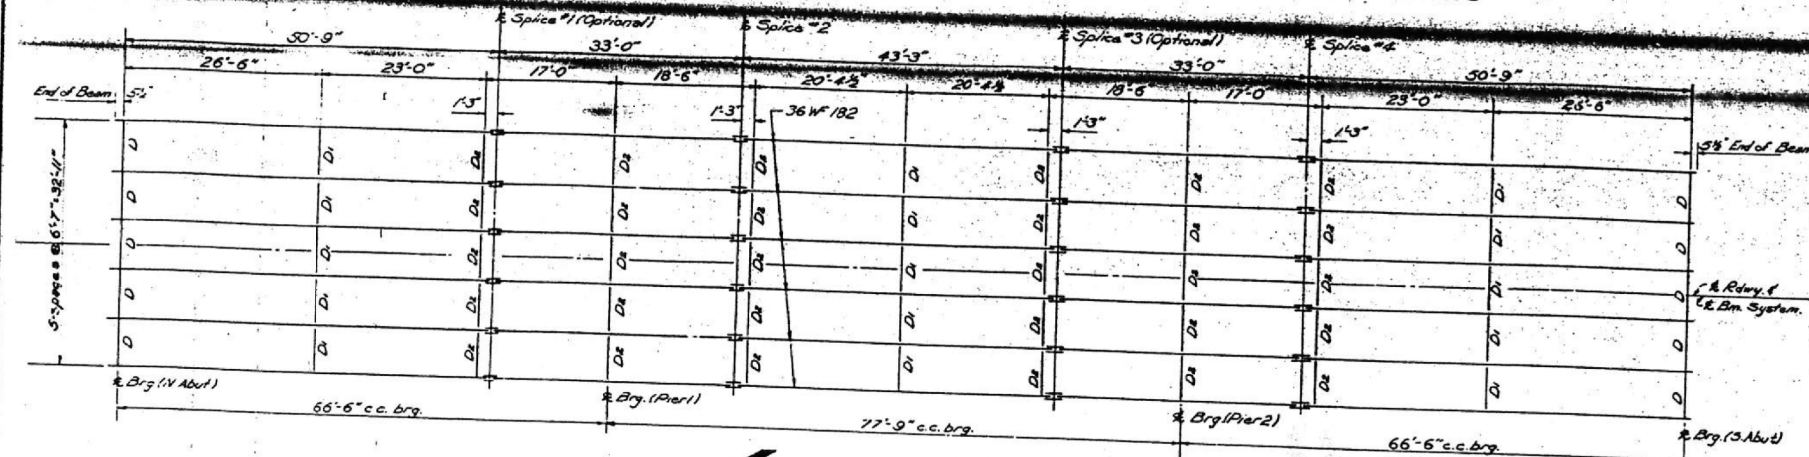 ℄ Splice #1 (Optional)
℄ Splice #2
℄ Splice #3 (Optional)
℄ Splice #4
50'-9"
33'-0"
43'-3"
33'-0"
50'-9"
26'-6"
23'-0"
17'-0"
18'-6"
20'-4½
20'-4½
18'-6
17'-0"
23'-0"
26'-6"
End of Beam
1'-3"
1'-3"
36 WF 182
1'-3"
1'-3"
5½" End of Beam
D D1 D2 D2 D2 D1 D2 D2 D2 D1 D
D D1 D2 D2 D2 D1 D2 D2 D2 D1 D
D D1 D2 D2 D2 D1 D2 D2 D2 D1 D
D D1 D2 D2 D2 D1 D2 D2 D2 D1 D
D D1 D2 D2 D2 D1 D2 D2 D2 D1 D
5-spaces @ 6'-7" = 32'-11"
℄ Rdwy. &
℄ Bm. System.
℄ Brg. (N Abut)
℄ Brg. (Pier 1)
℄ Brg. (Pier 2)
℄ Brg. (S. Abut)
66'-6" c.c. brg.
77'-9" c.c. brg.
66'-6" c.c. brg.